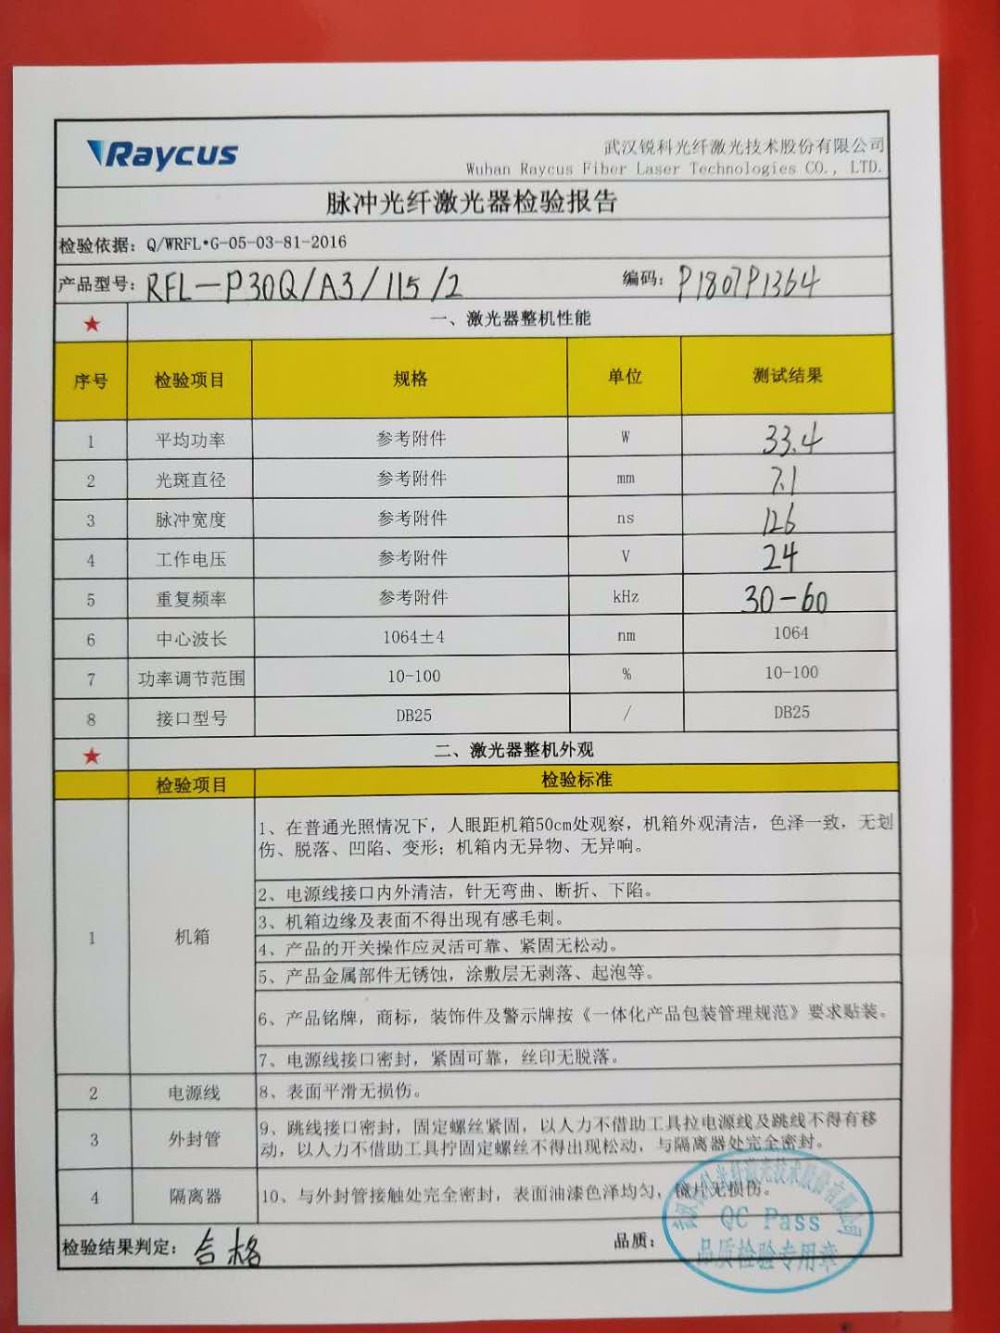 Raycus
武汉锐科光纤激光技术股份有限公司
Wuhan Raycus Fiber Laser Technologies CO., LTD.
脉冲光纤激光器检验报告
检验依据: Q/WRFL•G-05-03-81-2016
产品型号: RFL-P30Q/A3/115/2 编码: P1807P1364
★ 一、激光器整机性能
序号 检验项目 规格 单位 测试结果
1 平均功率 参考附件 W 33.4
2 光斑直径 参考附件 mm 7.1
3 脉冲宽度 参考附件 ns 126
4 工作电压 参考附件 V 24
5 重复频率 参考附件 kHz 30-60
6 中心波长 1064±4 nm 1064
7 功率调节范围 10-100 % 10-100
8 接口型号 DB25 / DB25
★ 二、激光器整机外观
检验项目 检验标准
1、在普通光照情况下，人眼距机箱50cm处观察，机箱外观清洁，色泽一致，无划
伤、脱落、凹陷、变形；机箱内无异物、无异响。
2、电源线接口内外清洁，针无弯曲、断折、下陷。
3、机箱边缘及表面不得出现有感毛刺。
1 机箱
4、产品的开关操作应灵活可靠、紧固无松动。
5、产品金属部件无锈蚀，涂敷层无剥落、起泡等。
6、产品铭牌，商标，装饰件及警示牌按《一体化产品包装管理规范》要求贴装。
7、电源线接口密封，紧固可靠，丝印无脱落。
2 电源线 8、表面平滑无损伤。
3 外封管 9、跳线接口密封，固定螺丝紧固，以人力不借助工具拉电源线及跳线不得有移
动，以人力不借助工具拧固定螺丝不得出现松动，与隔离器处完全密封。
4 隔离器 10、与外封管接触处完全密封，表面油漆色泽均匀，镜片无损伤。
检验结果判定: 合格 品质:
QC Pass
品质检验专用章